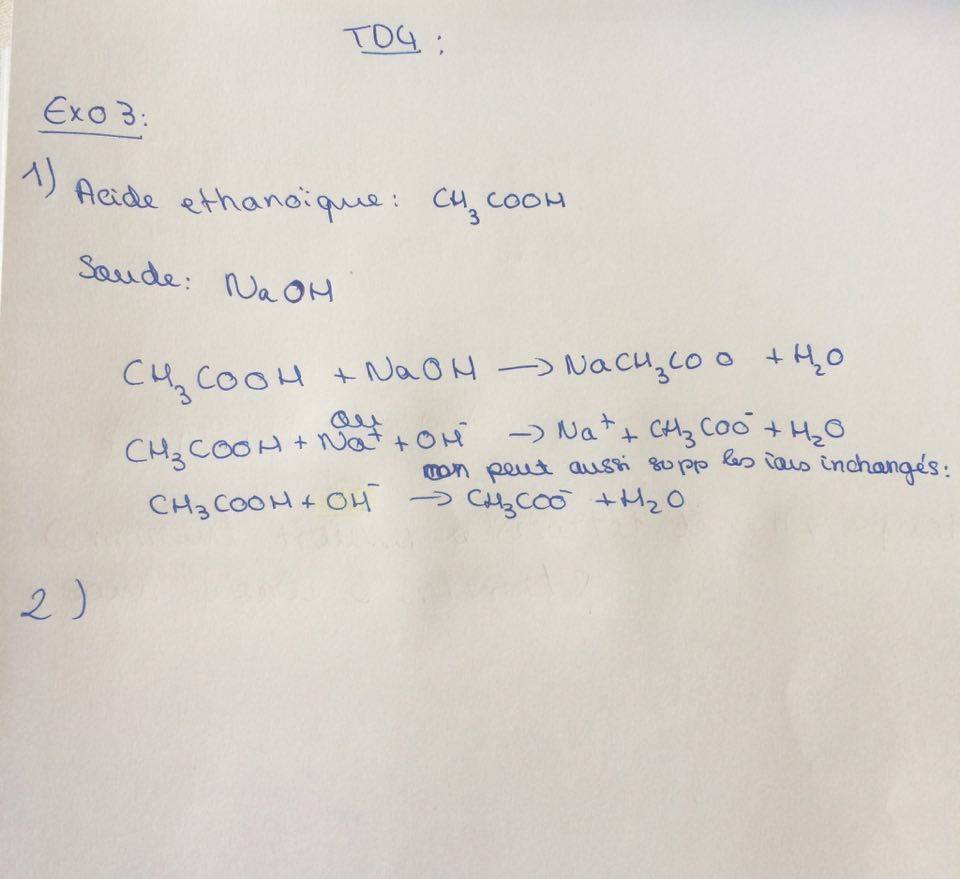 TD4 :
Exo 3:
1) Acide ethanoïque: CH₃COOH
Soude: NaOH
CH₃COOH + NaOH → NaCH₃COO + H₂O
ou
CH₃COOH + Na⁺ + OH⁻ → Na⁺ + CH₃COO⁻ + H₂O
on peut aussi supp les ions inchangés:
CH₃COOH + OH⁻ → CH₃COO⁻ + H₂O
2)